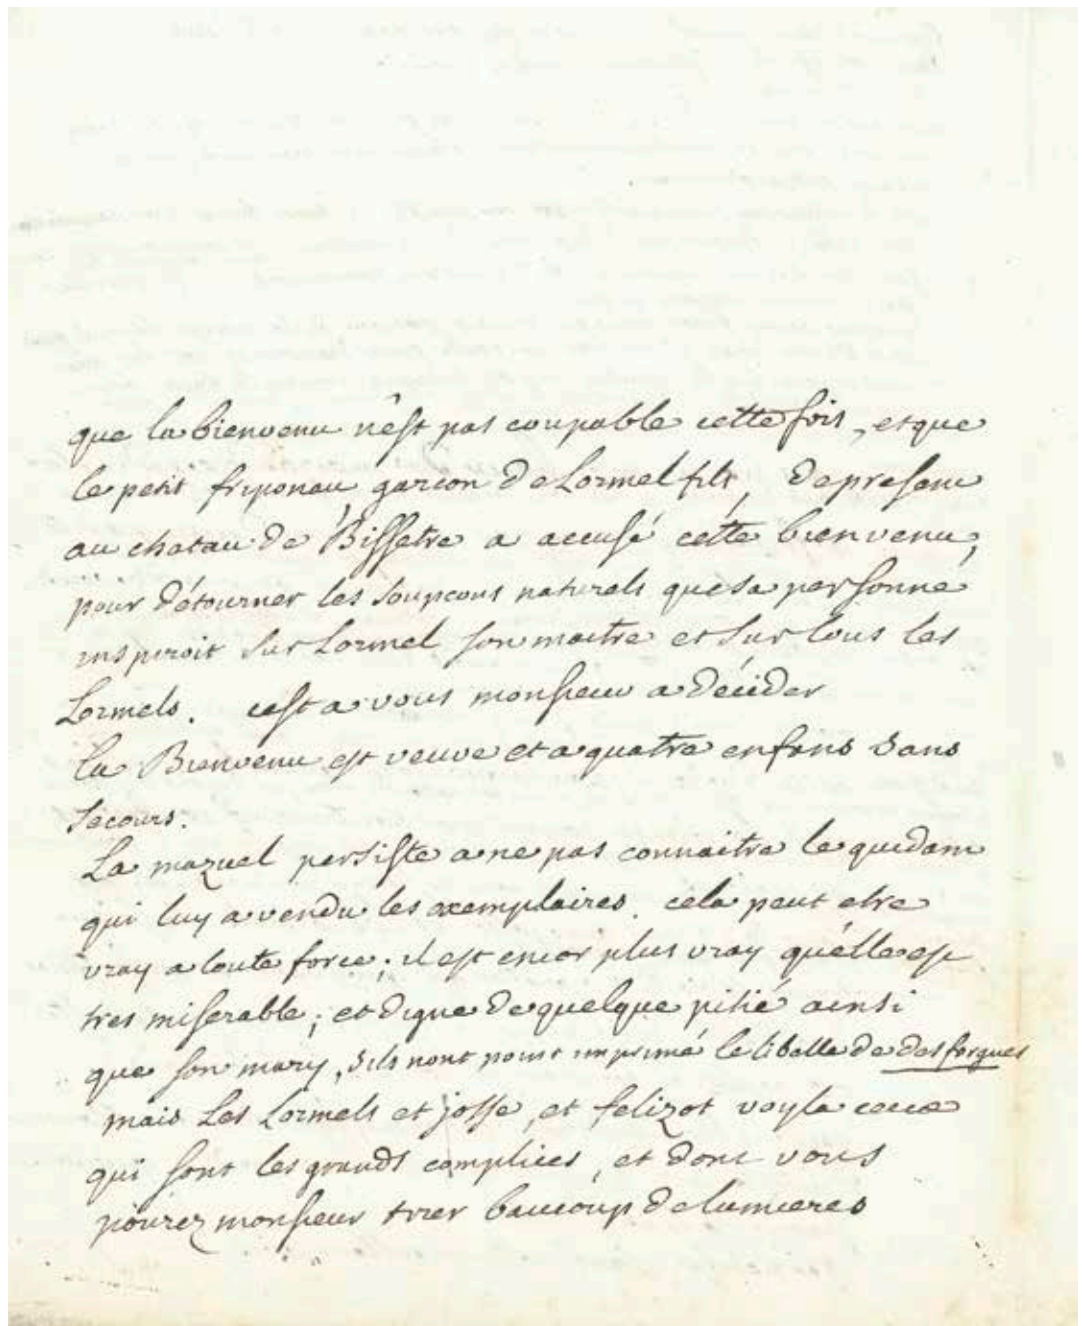 que la bienvenu n'est pas coupable cette fois, et que
le petit friponau garcon de Lormel fils, de present
au chatau de Bissetre a accusé cette bienvenu,
pour détourner les soupcons naturels que sa personne
inspiroit sur Lormel son maitre et sur tous les
Lormels. cest a vous monsieur a décider
la Bienvenu est veuve et a quatre enfans sans
secours.
La mazuel persiste a ne pas connaitre le quidam
qui luy a vendu les exemplaires. cela peut etre
vray a toute force; il est encor plus vray qu'elle est
tres miserable; et digne de quelque pitié ainsi
que son mary, s'ils nont point imprimé le libelle de desforgues
mais Les Lormels et josse, et felizot voyla ceux
qui sont les grands complices, et dont vous
pourez monsieur tirer baucoup de lumieres